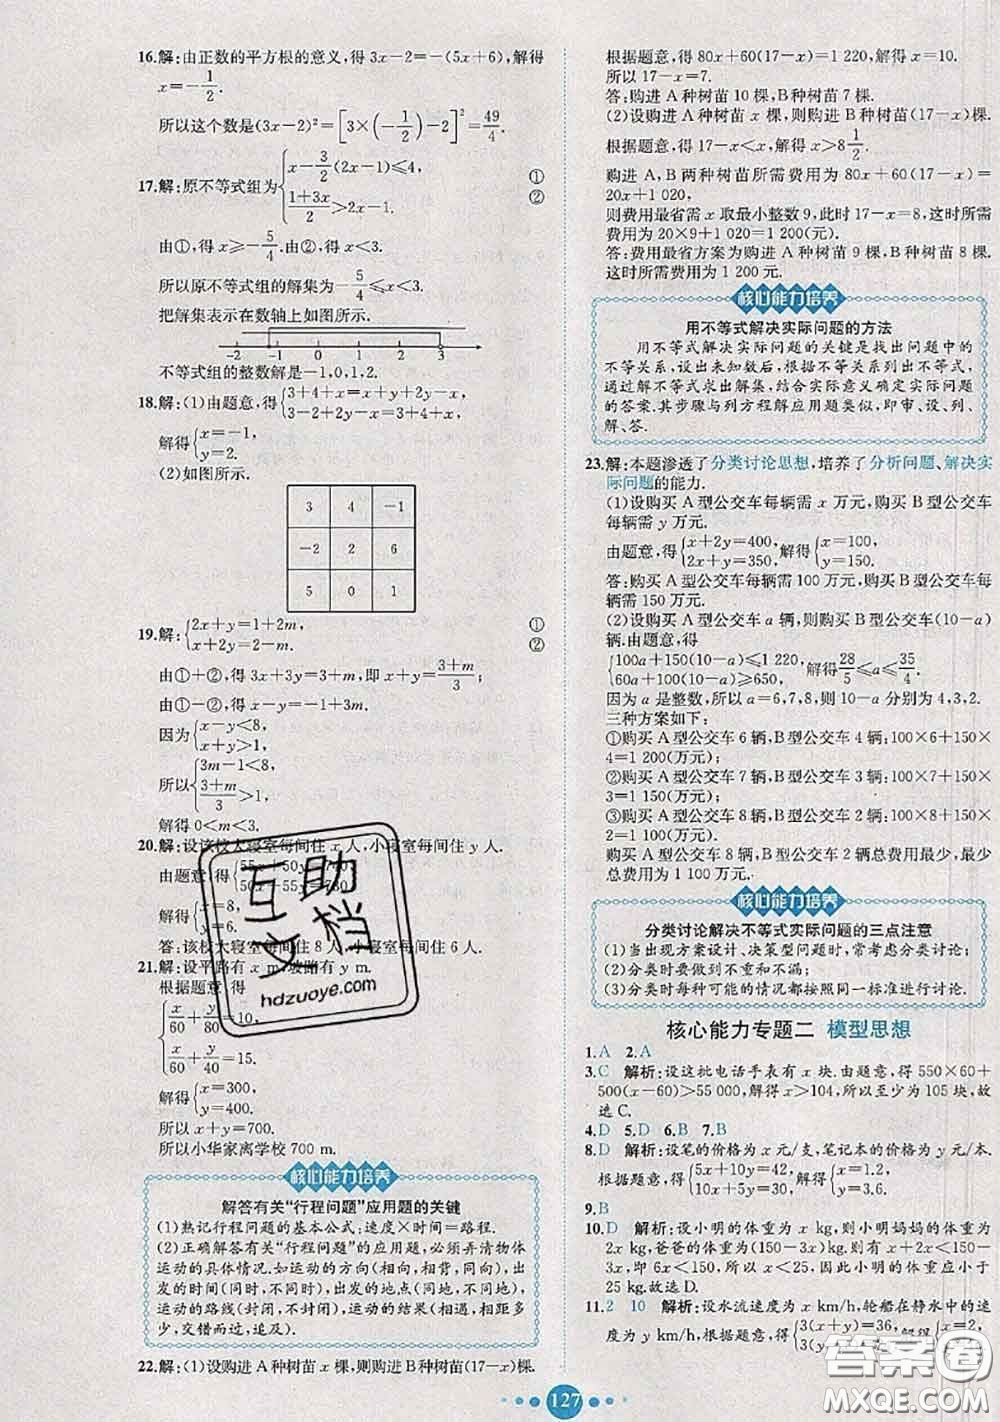 16.解:由正数的平方根的意义,得3x-2=-(5x+6),解得
x=-1/2.
所以这个数是(3x-2)²=[3×(-1/2)-2]²=49/4.
17.解:原不等式组为{x-3/2(2x-1)≤4, ①
(1+3x)/2>2x-1. ②
由①,得x≥-5/4.由②,得x<3.
所以原不等式组的解集为-5/4≤x<3.
把解集表示在数轴上如图所示.
-2 -1 0 1 2 3
不等式组的整数解是-1,0,1,2.
18.解:(1)由题意,得{3+4+x=x+y+2y-x,
3-2+2y-x=3+4+x,
解得{x=-1,
y=2.
(2)如图所示.
3 4 -1
-2 2 6
5 0 1
19.解:{2x+y=1+2m, ①
x+2y=2-m. ②
由①+②,得3x+3y=3+m,即x+y=(3+m)/3;
由①-②,得x-y=-1+3m.
因为{x-y<8,
x+y>1,
所以{3m-1<8,
(3+m)/3>1,
解得0<m<3.
20.解:设该校大寝室每间住x人,小寝室每间住y人.
由题意,得{55x+50y=740,
50x+55y=730,
解得{x=8,
y=6.
答:该校大寝室每间住8人,小寝室每间住6人.
21.解:设平路有x m,坡路有y m.
根据题意,得
{x/60+y/80=10,
x/60+y/40=15.
解得{x=300,
y=400.
所以x+y=700.
所以小华家离学校700 m.
核心能力培养
解答有关“行程问题”应用题的关键
(1)熟记行程问题的基本公式:速度×时间=路程.
(2)正确解答有关“行程问题”的应用题,必须弄清物体
运动的具体情况.如运动的方向(相向,相背,同向),出
发的时间(同时,不同时),出发的地点(同地,不同地),
运动的路线(封闭,不封闭),运动的结果(相遇,多少
次,交错而过,追及).
22.解:(1)设购进A种树苗x棵,则购进B种树苗(17-x)棵.
根据题意,得80x+60(17-x)=1 220,解得x=10.
所以17-x=7.
答:购进A种树苗10棵,B种树苗7棵.
(2)设购进A种树苗x棵,则购进B种树苗(17-x)棵.
根据题意,得17-x<x,解得x>8 1/2.
购进A,B两种树苗所需费用为80x+60(17-x)=
20x+1 020,
则费用最省需x取最小整数9,此时17-x=8,这时所需
费用为20×9+1 020=1 200(元).
答:费用最省方案为购进A种树苗9棵,B种树苗8棵.
这时所需费用为1 200元.
核心能力培养
用不等式解决实际问题的方法
用不等式解决实际问题的关键是找出问题中的
不等关系,设出未知数后,根据不等关系列出不等式,
通过解不等式求出解集,结合实际意义确定实际问题
的答案.其步骤与列方程解应用题类似,即审、设、列、
解、答.
23.解:本题渗透了分类讨论思想,培养了分析问题、解决实
际问题的能力.
(1)设购买A型公交车每辆需x万元,购买B型公交车
每辆需y万元.
由题意,得{x+2y=400,
2x+y=350,解得{x=100,
y=150.
答:购买A型公交车每辆需100万元,购买B型公交车每辆
需150万元.
(2)设购买A型公交车a辆,则购买B型公交车(10-a)
辆.由题意,得
{100a+150(10-a)≤1 220,
60a+100(10-a)≥650,解得28/5≤a≤35/4.
因为a是整数,所以a=6,7,8,则10-a分别为4,3,2.
三种方案如下:
①购买A型公交车6辆,B型公交车4辆:100×6+150×
4=1 200(万元);
②购买A型公交车7辆,B型公交车3辆:100×7+150×
3=1 150(万元);
③购买A型公交车8辆,B型公交车2辆:100×8+150×
2=1 100(万元).
购买A型公交车8辆,B型公交车2辆总费用最少,最少
总费用为1 100万元.
核心能力培养
分类讨论解决不等式实际问题的三点注意
(1)当出现方案设计、决策型问题时,常考虑分类讨论;
(2)分类时要做到不重和不漏;
(3)分类时每种可能的情况都按照同一标准进行讨论.
核心能力专题二 模型思想
1.A 2.A
3.C 解析:设这批电话手表有x块.由题意,得550×60+
500(x-60)>55 000,解得x>104,所以至少为105块,故
选C.
4.D 5.D 6.B 7.B
8.D 解析:设笔的价格为x元/支,笔记本的价格为y元/本.
根据题意,得{5x+10y=42,
10x+5y=30,解得{x=1.2,
y=3.6.
9.B
10.D 解析:设小明的体重为x kg,则小明妈妈的体重为
2x kg,爸爸的体重为(150-3x)kg.根据题意,得x+2x<
150-3x,即6x<150,所以x<25.因此小明的体重应小于
25 kg.故选D.
11.2 10 解析:设水流速度为x km/h,轮船在静水中的速
度为y km/h,根据题意,得{3(x+y)=36,
互助
文档
hdzuoye.com
答案圈
MXQE.COM
127